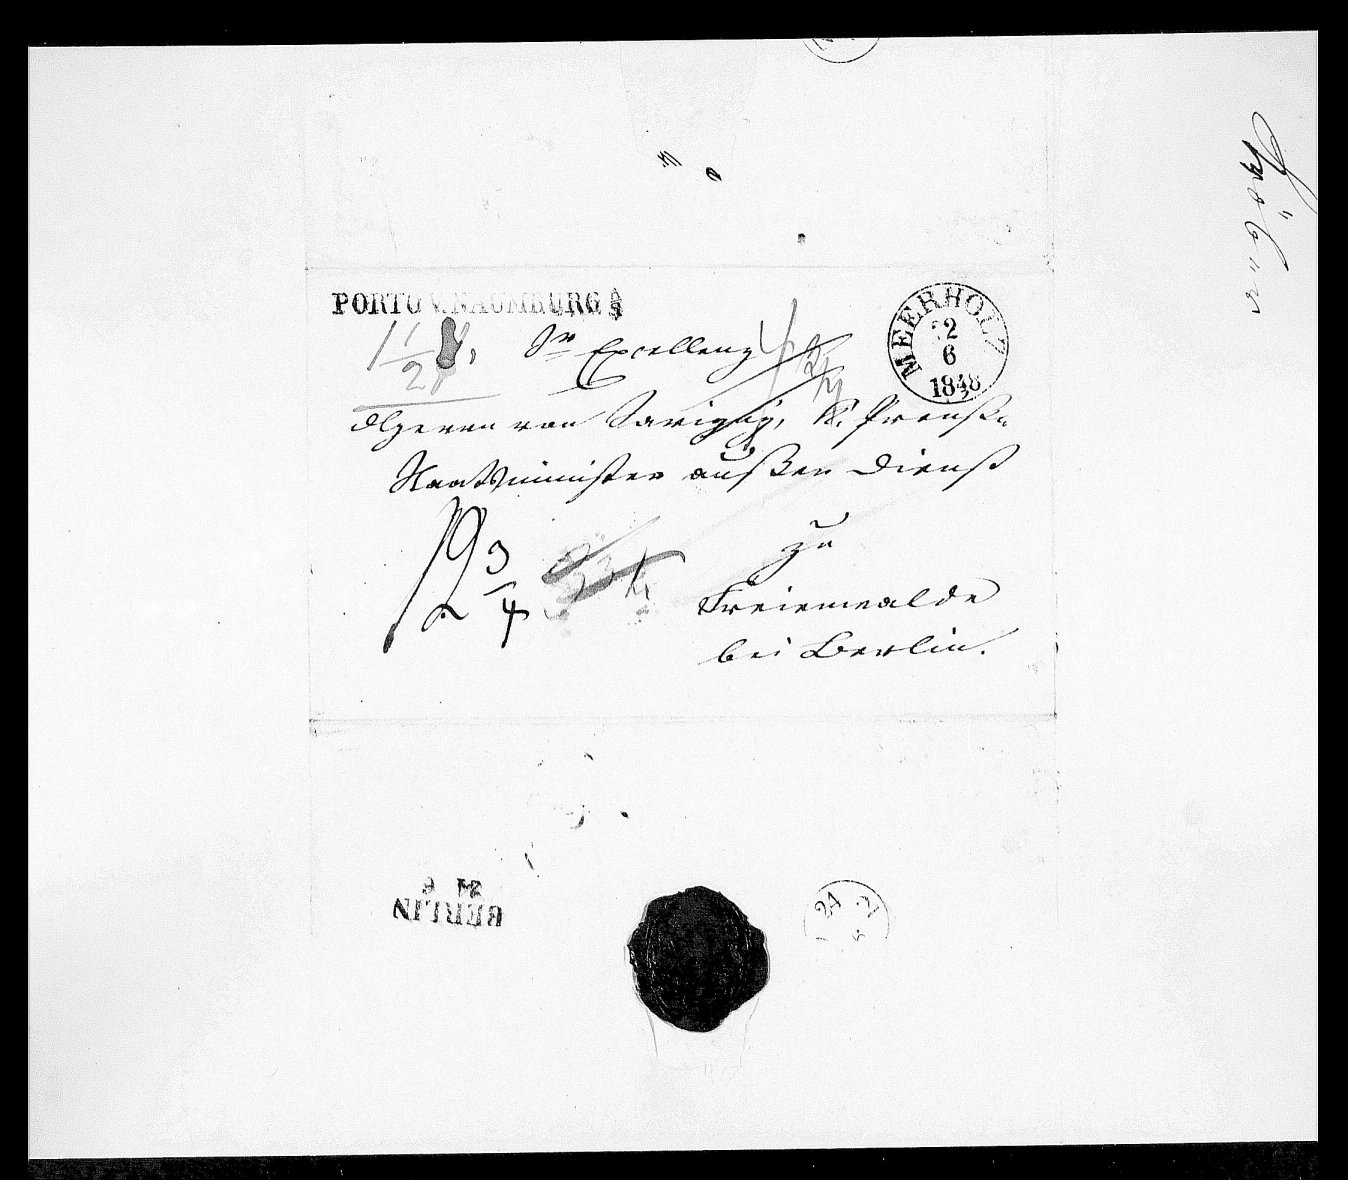 PORTO V. NAUMBURG
MEERHOLZ
22
6
1848
1 1/2
Sr Excellenz
Herrn von Savigny, K. Preuß.
Staatsminister außer Dienst
zu
Freienwalde
bei Berlin.
12 3/4
BERLIN
24 6
24